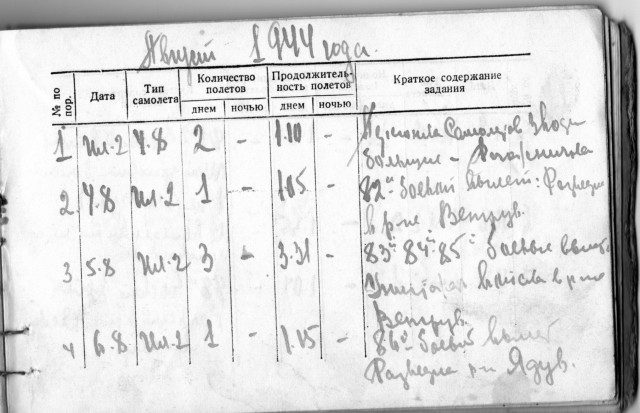 Август 1944 года.
№ по пор. Дата Тип самолета Количество полетов Продолжительность полетов Краткое содержание задания
днем ночью днем ночью
1 Ил-2 4.8 2 - 1.10 -
2 4.8 Ил-2 1 - 1.05 - 82й боевой вылет: Разведка
в р-не Венгрув.
3 5.8 Ил-2 3 - 3.31 - 83й 84й 85й боевые вылеты
войска в р-не
Венгрув.
4 6.8 Ил-2 1 - 1.15 - 86й боевой вылет
Разведка р-н Ядув.